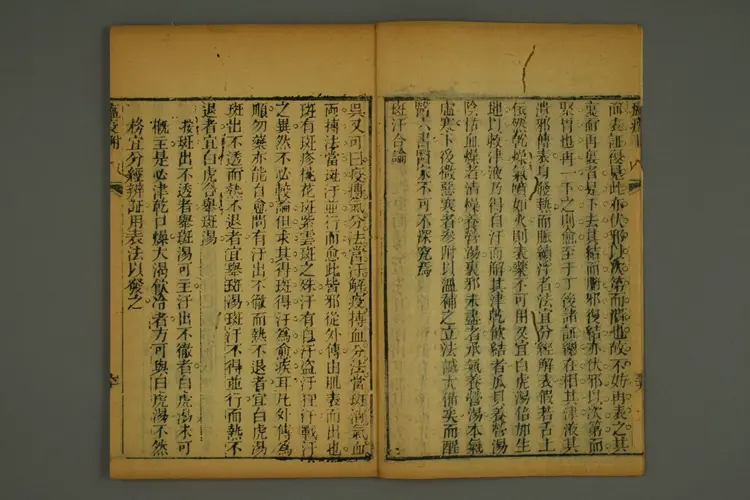 而表証復見此亦伏邪以次第而解也故不妨再表之其
裏而再裏者是下去其結而關邪復結亦伏邪以次第而
聚胃也再一下之則愈至于丁後諸証總在相其津液其
潰邪傳表身發熱而脹續浮者法宜分經解表假若舌上
依然乾燥氣噴如火則表藥不可用矣宜白虎湯倍加生
地以救津液乃得自汗而解其津乾飲結者瓜貝養營湯
陰枯血燥者清燥養營湯裏邪未盡者承氣養營湯本氣
虛寒下後微惡寒者參附以溫補之立法誠大備矣而醒
醫六書醫家不可不深究焉
斑汗合論
吳又可曰疫搏氣分法當汗解疫搏血分法當斑消氣血
兩搏法當斑汗並行而愈此皆邪從外傳由肌表而出也
斑有斑疹桃花斑紫雲斑之殊汗有自汗盜汗狂汗戰汗
之異然不必較論但求其得斑得汗為愈疾耳凡外傳為
順勿藥亦能自愈間有汗出不徹而熱不退者宜白虎湯
斑出不透而熱不退者宜舉斑湯斑汗不得並行而熱不
退者宜白虎合舉斑湯
按斑出不透者舉斑湯可主汗出不徹者白虎湯未可
概主是必津乾口燥大渴飲冷者方可與白虎湯不然
務宜分經辨証用表法以發之